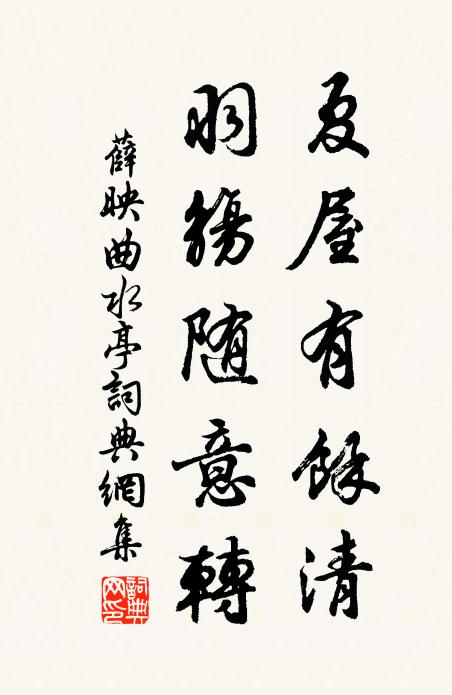 夏屋有餘清
羽觴随意轉
薛映曲水亭詞典網集
詞典网印